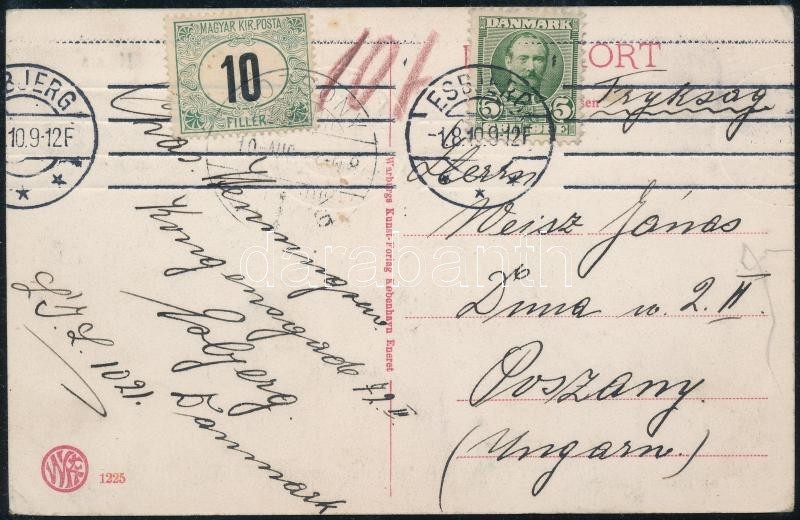 MAGYAR KIR. POSTA
10
FILLÉR
DANMARK
5 5
ORT
ESBJERG
-1.8.10.9-12F
BJERG
.10.9-12F
10f
Tryksag
Herrn
Weisz János
Duna u. 2. II.
Poszany.
(Ungarn.)
Henningsen.
Kongensgade 79 II
Esbjerg.
Danmark
L. 1021.
Warburgs Kunst-Forlag København Eneret
1225
darabanth